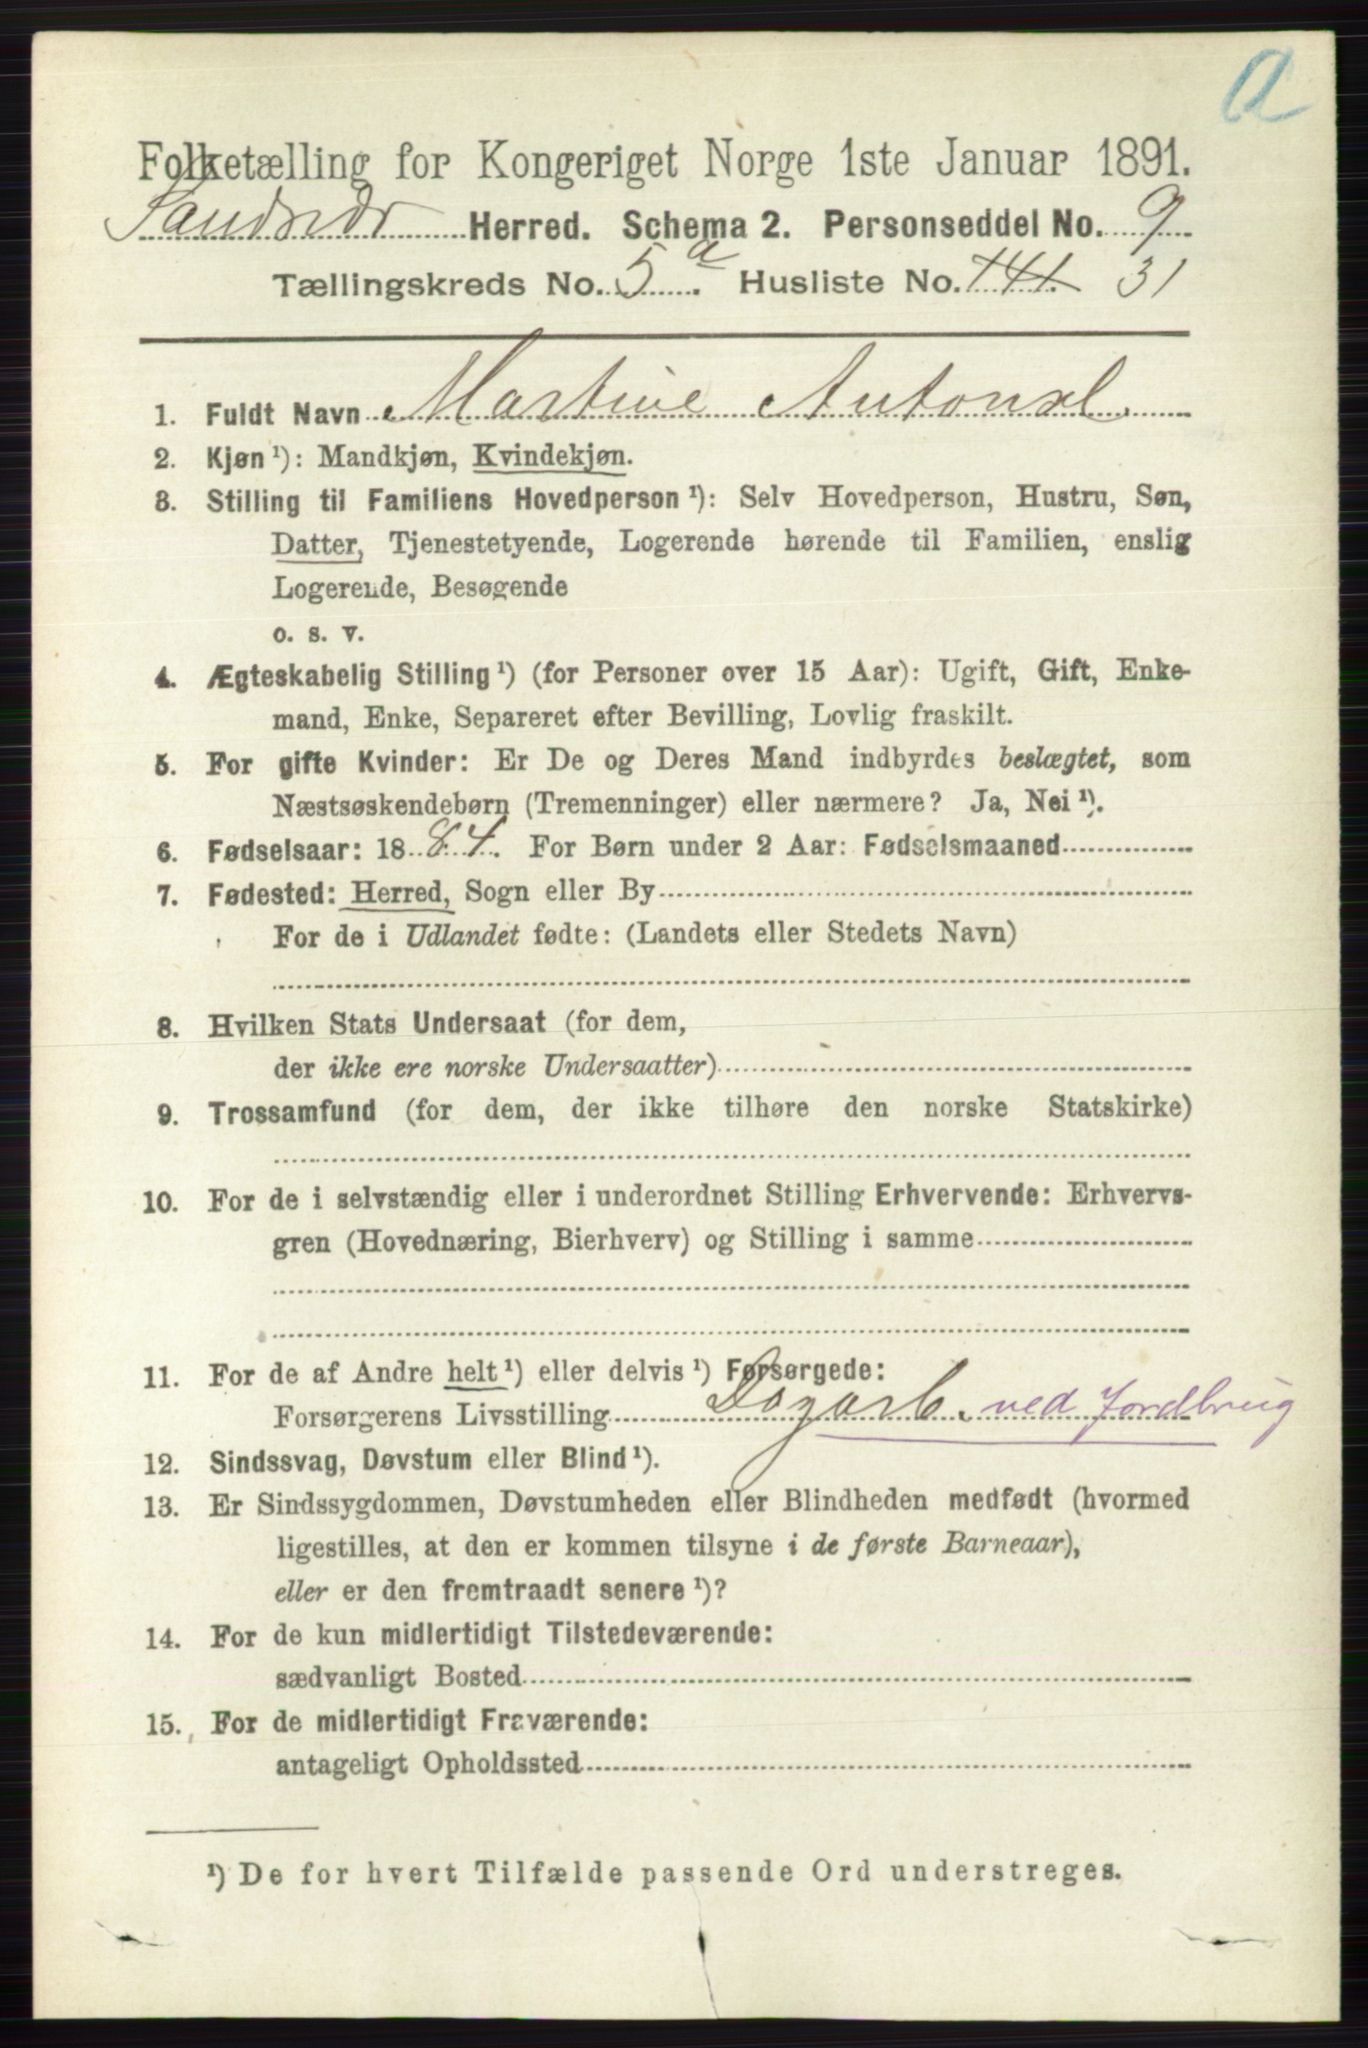 a
Folketælling for Kongeriget Norge 1ste Januar 1891.
Herred. Schema 2. Personseddel No. 9
Tællingskreds No. 5 a. Husliste No. 141. 31
1. Fuldt Navn Martine Antonsd.
2. Kjøn ¹): Mandkjøn, Kvindekjøn.
3. Stilling til Familiens Hovedperson ¹): Selv Hovedperson, Hustru, Søn,
Datter, Tjenestetyende, Logerende hørende til Familien, enslig
Logerende, Besøgende
o. s. v.
4. Ægteskabelig Stilling ¹) (for Personer over 15 Aar): Ugift, Gift, Enke-
mand, Enke, Separeret efter Bevilling, Lovlig fraskilt.
5. For gifte Kvinder: Er De og Deres Mand indbyrdes beslægtet, som
Næstsøskendebørn (Tremenninger) eller nærmere? Ja, Nei ¹).
6. Fødselsaar: 1884. For Børn under 2 Aar: Fødselsmaaned
7. Fødested: Herred, Sogn eller By
For de i Udlandet fødte: (Landets eller Stedets Navn)
8. Hvilken Stats Undersaat (for dem,
der ikke ere norske Undersaatter)
9. Trossamfund (for dem, der ikke tilhøre den norske Statskirke)
10. For de i selvstændig eller i underordnet Stilling Erhvervende: Erhvervs-
gren (Hovednæring, Bierhverv) og Stilling i samme
11. For de af Andre helt ¹) eller delvis ¹) Forsørgede:
Forsørgerens Livsstilling Dagarb. ved Jordbrug
12. Sindssvag, Døvstum eller Blind ¹).
13. Er Sindssygdommen, Døvstumheden eller Blindheden medfødt (hvormed
ligestilles, at den er kommen tilsyne i de første Barneaar),
eller er den fremtraadt senere ¹)?
14. For de kun midlertidigt Tilstedeværende:
sædvanligt Bosted
15. For de midlertidigt Fraværende:
antageligt Opholdssted
¹) De for hvert Tilfælde passende Ord understreges.